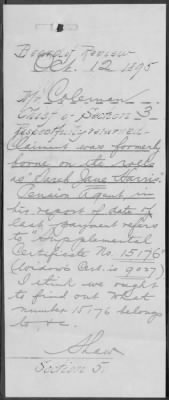 Board of Review
Oct. 12 1895
Mr. Coleman
Chief of Section 3
respectfully returned.
Claimant was formerly
borne on the rolls
as "Sarah Jane Harris".
Pension Agent, in
his report of date of
last payment refers
to "Supplemental
Certificate No. 15176"
(Widow's Cert. is 9037)
I think we ought
to find out what
number 15176 belongs
to, &c.
Shaw
Section 5.